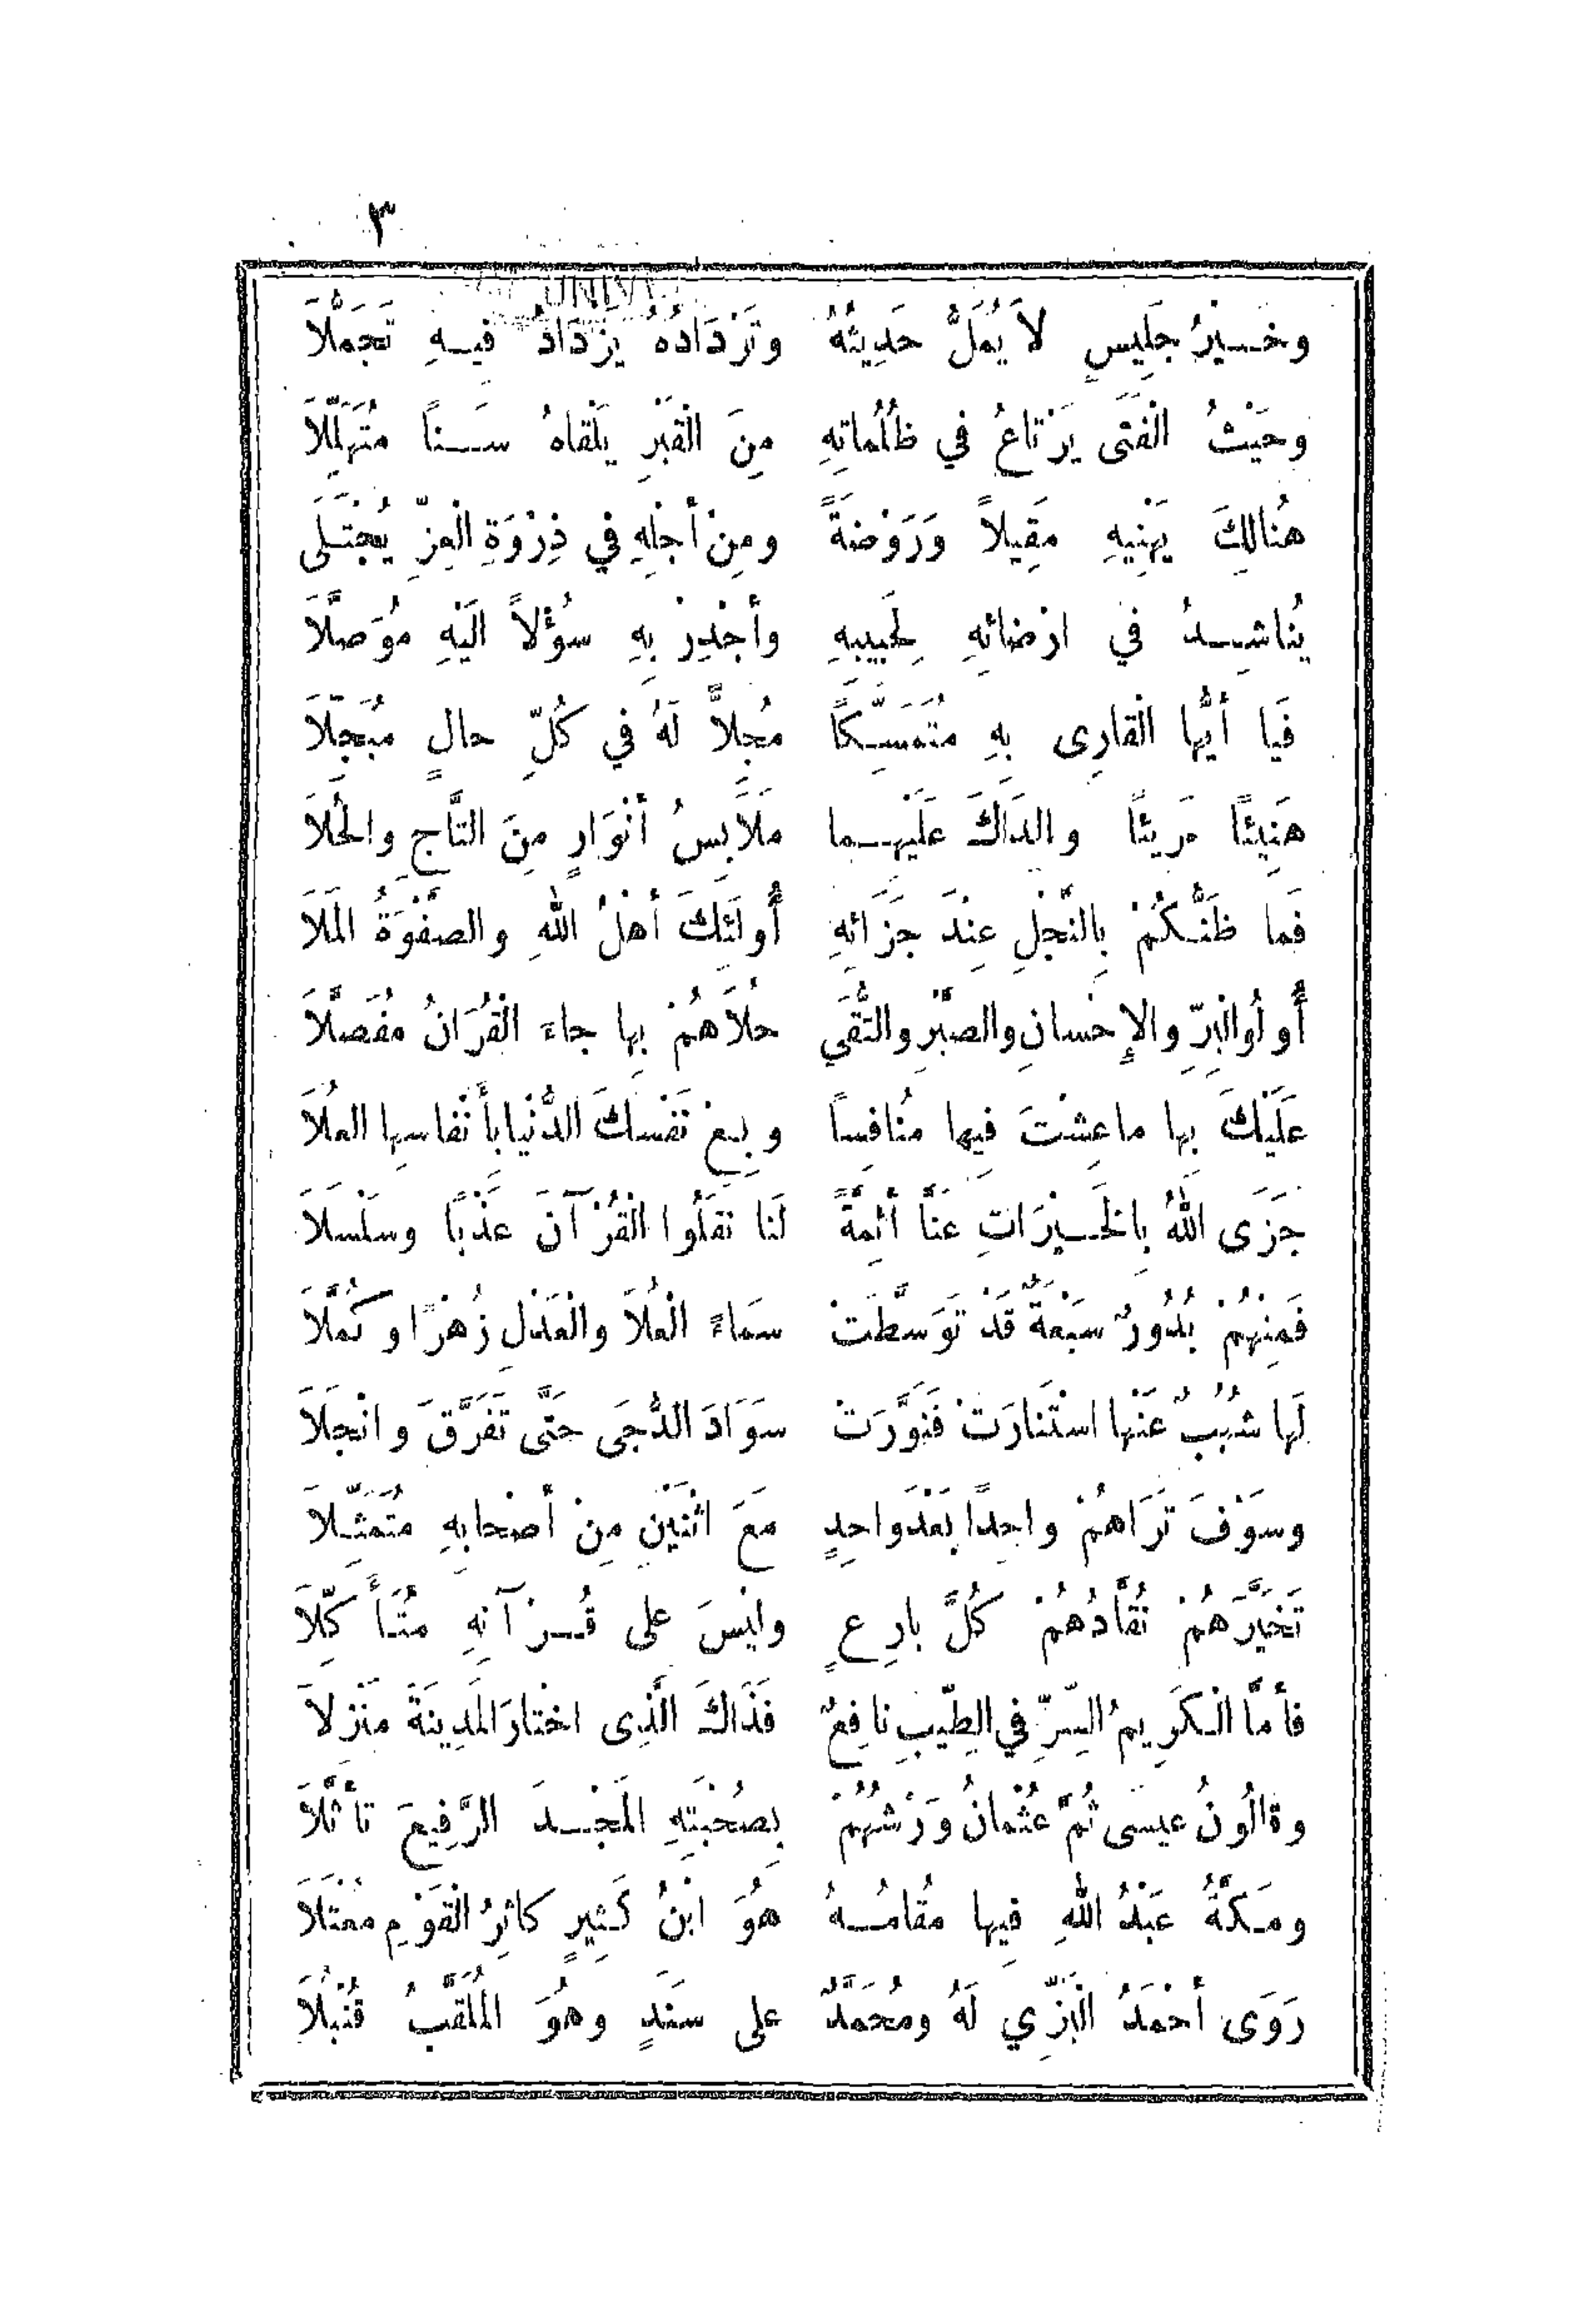 ٣
وخَيْرُ جَلِيسٍ لاَ يُمَلُّ حَدِيثُهُ وتَرْدَادُهُ يَزْدَادُ فيهِ تَجَمُّلاَ
وحَيْثُ الْفَتَى يَرْتاعُ في ظُلُماتِهِ مِنَ الْقَبْرِ يَلْقاهُ سَناً مُتَهَلِّلاَ
هُنالِكَ يَهْنِيهِ مَقِيلاً وَرَوْضَةً ومِنْ أَجْلِهِ في ذِرْوَةِ الْعِزِّ يُجْتَلَى
يُناشِدُ في ارْضائِهِ لِحَبِيبِهِ وأَجْدِرْ بِهِ سُؤْلاً الَيْهِ مُوَصَّلاَ
فَيا أَيُّها الْقارِى بِهِ مُتَمَسِّكًا مُجِلاًّ لَهُ في كُلِّ حالٍ مُبَجِّلاَ
هَنِيئًا مَرِيئًا والِدَاكَ عَلَيْهِما مَلاَبِسُ أَنْوَارٍ مِنَ التَّاجِ والحُلاَ
فَما ظَنُّكُمْ بِالنَّجْلِ عِنْدَ جَزَائِهِ أُولَئِكَ أَهْلُ اللهِ والصَّفْوَةُ المَلاَ
أُولُو الْبِرِّ والإِحْسانِ والصَّبْرِ والتُّقَى حُلاَهُمْ بِها جاءَ الْقُرَانُ مُفَصَّلاَ
عَلَيْكَ بِها ما عِشْتَ فِيها مُنافِساً وبِعْ نَفْسَكَ الدُّنْيا بأَنْفاسِها العُلاَ
جَزَى اللهُ بِالْخَيْرَاتِ عَنَّا أَئِمَّةً لَنا نَقَلُوا الْقُرْآنَ عَذْبًا وسَلْسَلاَ
فَمِنْهُمْ بُدُورٌ سَبْعَةٌ قَدْ تَوَسَّطَتْ سَماءَ الْعُلاَ والْعَدْلِ زُهْرًا وكُمَّلاَ
لَها شُهُبٌ عَنْها اسْتَنارَتْ فَنَوَّرَتْ سَوَادَ الدُّجَى حَتَّى تَفَرَّقَ وانْجَلاَ
وسَوْفَ تَرَاهُمْ واحِدًا بَعْدَ واحِدٍ مَعَ اثْنَيْنِ مِنْ أَصْحابِهِ مُتَمَثِّلاَ
تَخَيَّرَهُمْ نُقَّادُهُمْ كُلَّ بارِعٍ ولَيْسَ على قُرْآنِهِ مُتَأَكِّلاَ
فأَمَّا الْكَرِيمُ السِّرِّ في الطِّيبِ نافِعٌ فَذَاكَ الَّذِى اخْتارَ المَدِينَةَ مَنْزِلاَ
وقالُونُ عيسَى ثُمَّ عُثْمانُ وَرْشُهُمْ بِصُحْبَتِهِ المَجْدَ الرَّفِيعَ تَأَثَّلاَ
ومَكَّةُ عَبْدُ اللهِ فِيها مُقامُهُ هُوَ ابْنُ كَثِيرٍ كاثِرُ الْقَوْمِ مُعْتَلاَ
رَوَى أَحْمَدُ الْبَزِّي لَهُ ومُحَمَّدٌ على سَنَدٍ وهُوَ المُلَقَّبُ قُنْبُلاَ